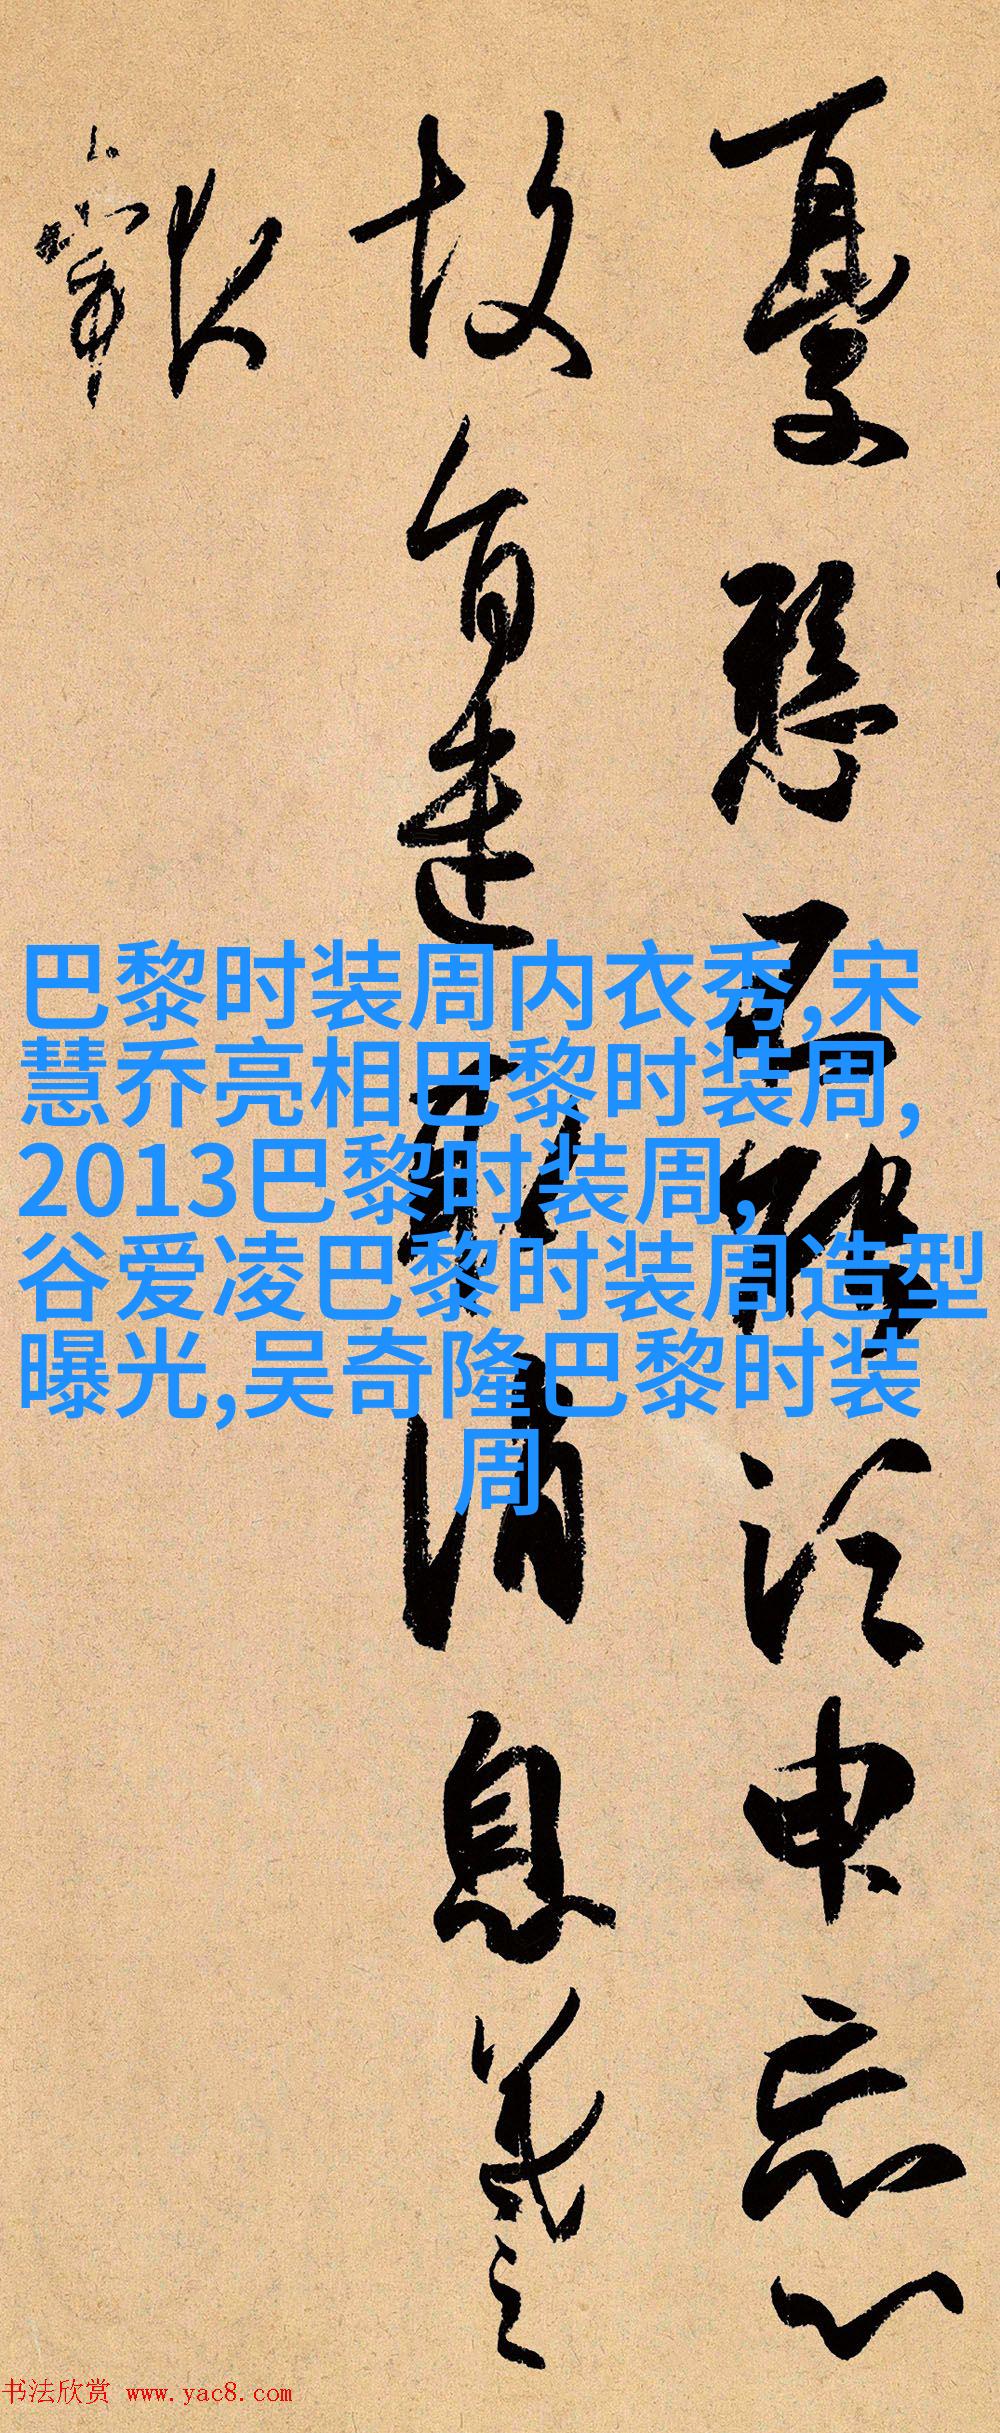 憂懸不能須申忘心
故旨遣取消息羲之
報
巴黎时装周内衣秀,宋
慧乔亮相巴黎时装周,
2013巴黎时装周,
谷爱凌巴黎时装周造型
曝光,吴奇隆巴黎时装
周
书法欣赏 www.yac8.com